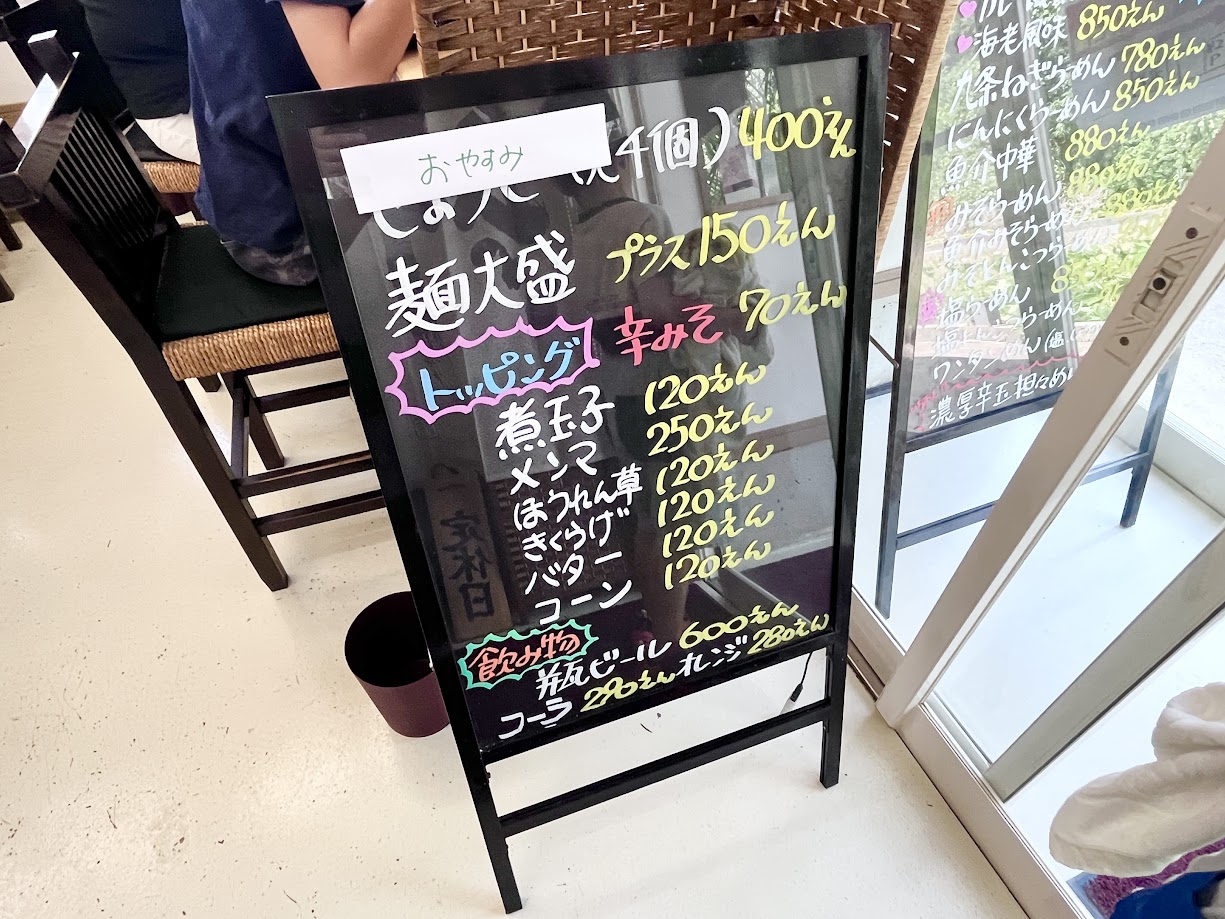 おやすみ
(4個) 400えん
麺大盛 プラス150えん
トッピング 辛みそ 70えん
煮玉子 120えん
メンマ 250えん
ほうれん草 120えん
きくらげ 120えん
バター 120えん
コーン 120えん
飲み物
瓶ビール 600えん
コーラ 280えん オレンジ 280えん
定休日
海老風味 850えん
九条ねぎらーめん 780えん
にんにくらーめん 850えん
魚介中華 880えん
みそらーめん 880えん
魚介みそらーめん 880えん
みそとんこつら
塩らーめん 8
ワンタン
濃厚辛玉担々め